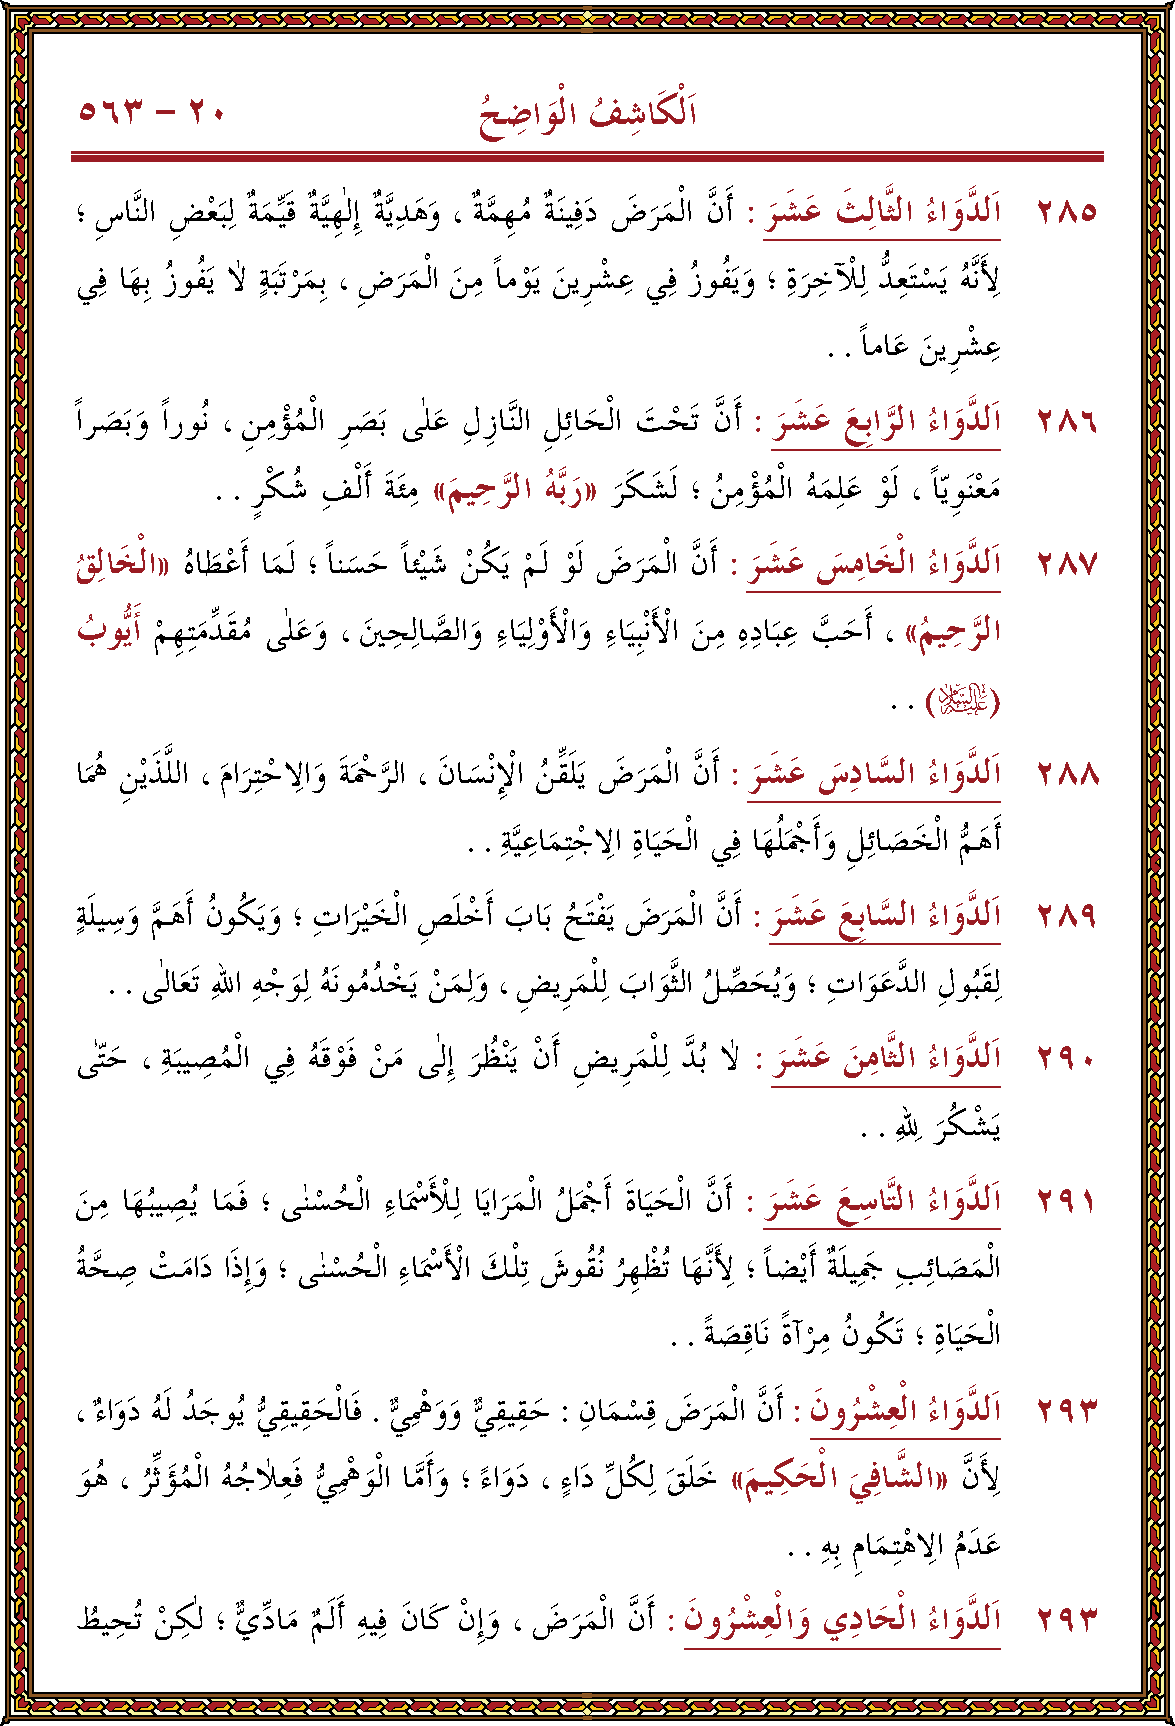 اَلْكَاشِفُ الْوَاضِحُ ٢٠ - ٥٦٣
٢٨٥ اَلدَّوَاءُ الثَّالِثَ عَشَرَ : أَنَّ الْمَرَضَ دَفِينَةٌ مُهِمَّةٌ ، وَهَدِيَّةٌ إِلٰهِيَّةٌ قَيِّمَةٌ لِبَعْضِ النَّاسِ ؛
لِأَنَّهُ يَسْتَعِدُّ لِلْآخِرَةِ ؛ وَيَفُوزُ فِي عِشْرِينَ يَوْماً مِنَ الْمَرَضِ ، بِمَرْتَبَةٍ لاٰ يَفُوزُ بِهَا فِي
عِشْرِينَ عَاماً . .
٢٨٦ اَلدَّوَاءُ الرَّابِعَ عَشَرَ : أَنَّ تَحْتَ الْحَائِلِ النَّازِلِ عَلٰى بَصَرِ الْمُؤْمِنِ ، نُوراً وَبَصَراً
مَعْنَوِيّاً ، لَوْ عَلِمَهُ الْمُؤْمِنُ ؛ لَشَكَرَ «رَبَّهُ الرَّحِيمَ» مِئَةَ أَلْفِ شُكْرٍ . .
٢٨٧ اَلدَّوَاءُ الْخَامِسَ عَشَرَ : أَنَّ الْمَرَضَ لَوْ لَمْ يَكُنْ شَيْئاً حَسَناً ؛ لَمَا أَعْطَاهُ «الْخَالِقُ
الرَّحِيمُ» ، أَحَبَّ عِبَادِهِ مِنَ الْأَنْبِيَاءِ وَالْأَوْلِيَاءِ وَالصَّالِحِينَ ، وَعَلٰى مُقَدِّمَتِهِمْ أَيُّوبُ
(عَلَيْهِ السَّلَامُ) . .
٢٨٨ اَلدَّوَاءُ السَّادِسَ عَشَرَ : أَنَّ الْمَرَضَ يَلَقِّنُ الْإِنْسَانَ ، الرَّحْمَةَ وَالاِحْتِرَامَ ، اللَّذَيْنِ هُمَا
أَهَمُّ الْخَصَائِلِ وَأَجْمَلُهَا فِي الْحَيَاةِ الاِجْتِمَاعِيَّةِ . .
٢٨٩ اَلدَّوَاءُ السَّابِعَ عَشَرَ : أَنَّ الْمَرَضَ يَفْتَحُ بَابَ أَخْلَصِ الْخَيْرَاتِ ؛ وَيَكُونُ أَهَمَّ وَسِيلَةٍ
لِقَبُولِ الدَّعَوَاتِ ؛ وَيُحَصِّلُ الثَّوَابَ لِلْمَرِيضِ ، وَلِمَنْ يَخْدُمُونَهُ لِوَجْهِ اللهِ تَعَالٰى . .
٢٩٠ اَلدَّوَاءُ الثَّامِنَ عَشَرَ : لاٰ بُدَّ لِلْمَرِيضِ أَنْ يَنْظُرَ إِلٰى مَنْ فَوْقَهُ فِي الْمُصِيبَةِ ، حَتّٰى
يَشْكُرَ لِلهِ . .
٢٩١ اَلدَّوَاءُ التَّاسِعَ عَشَرَ : أَنَّ الْحَيَاةَ أَجْمَلُ الْمَرَايَا لِلْأَسْمَاءِ الْحُسْنٰى ؛ فَمَا يُصِيبُهَا مِنَ
الْمَصَائِبِ جَمِيلَةٌ أَيْضاً ؛ لِأَنَّهَا تُظْهِرُ نُقُوشَ تِلْكَ الْأَسْمَاءِ الْحُسْنٰى ؛ وَإِذَا دَامَتْ صِحَّةُ
الْحَيَاةِ ؛ تَكُونُ مِرْآةً نَاقِصَةً . .
٢٩٣ اَلدَّوَاءُ الْعِشْرُونَ : أَنَّ الْمَرَضَ قِسْمَانِ : حَقِيقِيٌّ وَوَهْمِيٌّ . فَالْحَقِيقِيُّ يُوجَدُ لَهُ دَوَاءٌ ،
لِأَنَّ «الشَّافِيَ الْحَكِيمَ» خَلَقَ لِكُلِّ دَاءٍ ، دَوَاءً ؛ وَأَمَّا الْوَهْمِيُّ فَعِلاٰجُهُ الْمُؤَثِّرُ ، هُوَ
عَدَمُ الاِهْتِمَامِ بِهِ . .
٢٩٣ اَلدَّوَاءُ الْحَادِي وَالْعِشْرُونَ : أَنَّ الْمَرَضَ ، وَإِنْ كَانَ فِيهِ أَلَمٌ مَادِّيٌّ ؛ لٰكِنْ تُحِيطُ